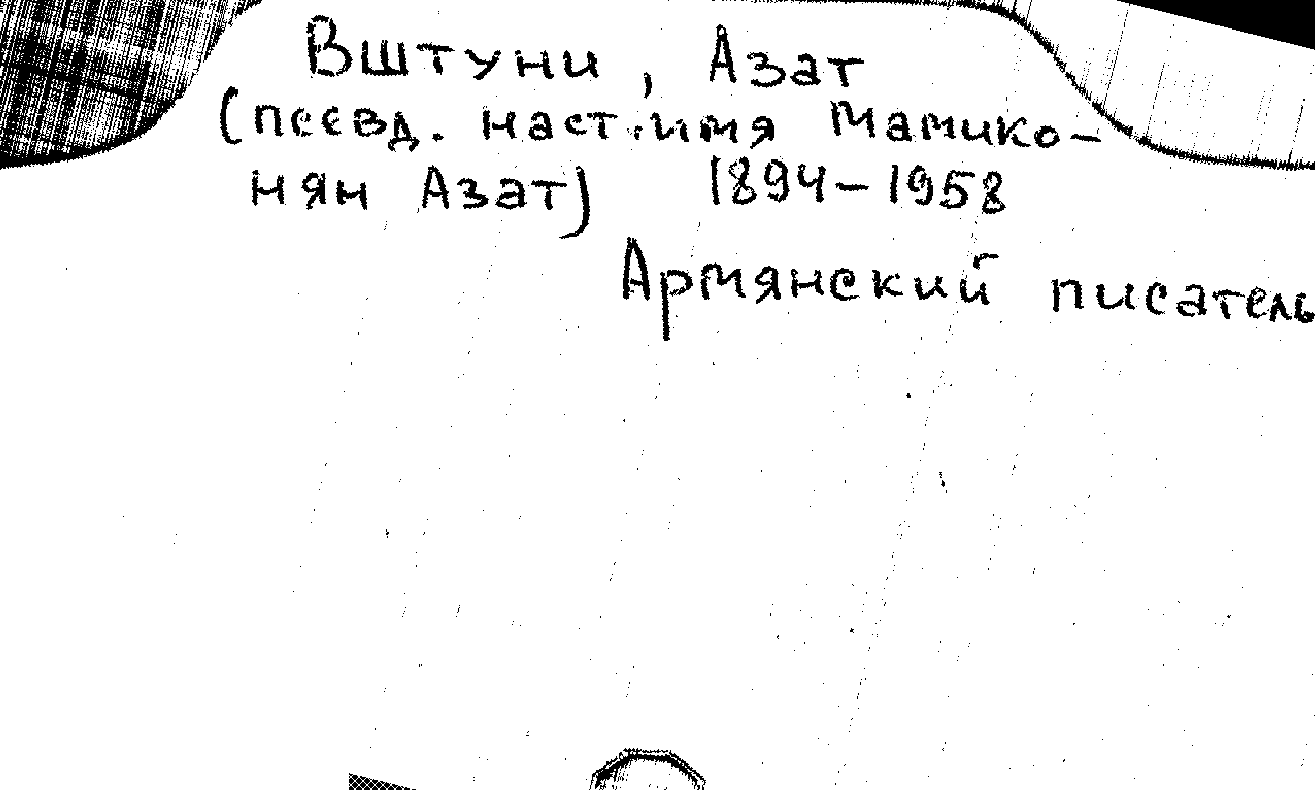 Вштуни, Азат
(псевд. наст.имя Мамико-
нян Азат) 1894-1958
Армянский писатель